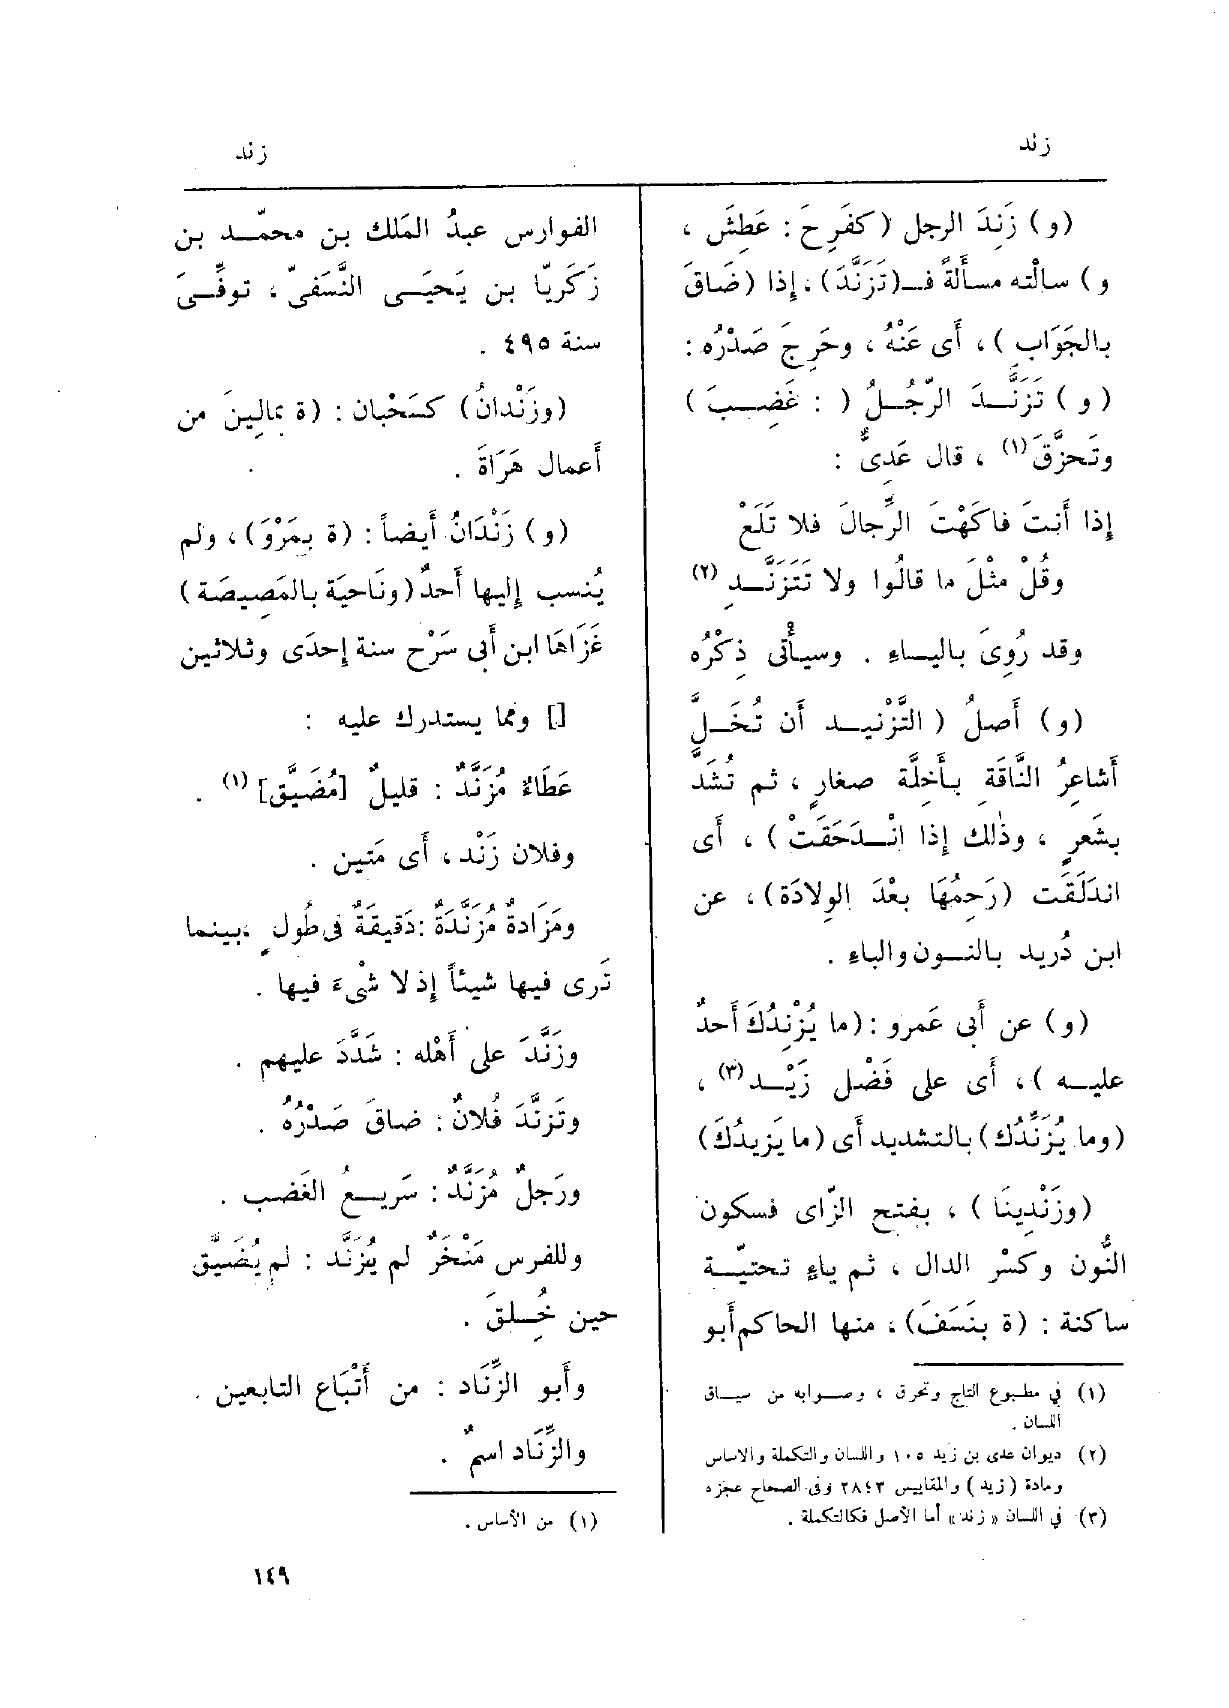 زند
زند
(و) زَنِدَ الرجل (كفَرِحَ : عَطِشَ ،
و) سألته مسألةً فـ(تَزَنَّدَ) ، إذا (ضَاقَ
بالجَوَابِ) ، أى عَنْهُ ، وحَرِجَ صَدْرُه :
(و) تَزَنَّدَ الرّجُلُ (: غَضِبَ)
وتَحزَّقَ (١) ، قال عَدِىٌّ :
إذا أَنتَ فاكَهْتَ الرِّجالَ فلا تَلَعْ
وقُلْ مثْلَ ما قالُوا ولا تَتَزَنَّدِ (٢)
وقد رُوِىَ بالياءِ . وسيأْتى ذِكْرُه
(و) أَصلُ (التَّزْنيد أَن تُخَلَّ
أَشاعِرُ النَّاقَةِ بأَخِلَّة صغارٍ ، ثم تُشَدّ
بشَعرٍ ، وذٰلك إِذا انْدَحَقَتْ) ، أَى
اندَلَقَت (رَحِمُهَا بعْدَ الوِلادَة) ، عن
ابن دُريد بالنون والباءِ .
(و) عن أَبى عَمرو : (ما يُزْنِدُكَ أَحدٌ
عليه) ، أَى على فَضْل زَيْد (٣) ،
(وما يُزَنِّدُك) بالتشديد أَى (ما يَزِيدُكَ)
(وزَنْدِينَا) ، بفتح الزّاى فسكون
النُّون وكسْر الدال ، ثم ياءٍ تحتيّة
ساكنة : (ة بنَسَفَ) ، منها الحاكم أَبو
(١) في مطبوع التاج وتحرق ، وصوابه من سياق
اللسان .
(٢) ديوان عدى بن زيد ١٠٥ واللسان والتكملة والاساس
ومادة (زيد) والمقاييس ٢٨/٣ وفى الصحاح عجزه
(٣) في اللسان «زند» أما الأصل فكالتكملة .
الفوارس عبدُ المَلك بن محمّد بن
زَكَريّا بن يَحيَى النَّسَفىّ ، توفِّىَ
سنة ٤٩٥ .
(وزَنْدانُ) كسَحْبان : (ة بمَالِينَ من
أَعمال هَرَاةَ .
(و) زَنْدَانُ أَيضاً : (ة بمَرْوَ) ، ولم
يُنسب إِليها أَحدٌ (ونَاحيَة بالمَصِيصَة)
غَزَاهَا ابن أَبى سَرْح سنة إِحدَى وثلاثين
[] ومما يستدرك عليه :
عَطَاءٌ مُزَنَّدٌ : قليلٌ [مُضَيَّق] (١) .
وفلان زَنْد ، أَى مَتين .
ومَزَادةٌ مُزَنَّدَةٌ : دَقيقَةٌ فى طُولٍ ، بينما
تَرى فيها شيئاً إِذ لا شْىءَ فيها .
وزَنَّدَ على أَهْله : شَدَّدَ عليهم .
وتَزنَّدَ فُلانٌ : ضاقَ صَدْرُهُ .
ورَجلٌ مُزَنَّدٌ : سَريعُ الغَضب .
وللفرس مَنْخَرٌ لم يُزَنَّد : لم يُضَيَّق
حين خُلِقَ .
وأَبو الزِّنَاد : من أَتْبَاع التابعين .
والزِّنَاد اسمٌ .
(١) من الأساس .
١٤٩